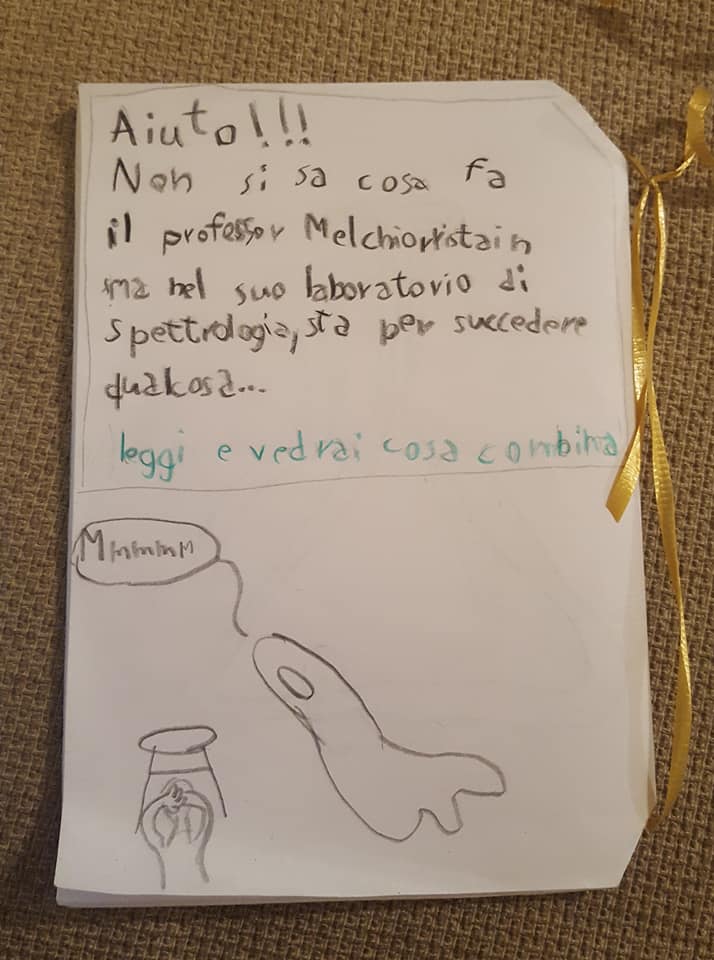 Aiuto!!!
Non si sa cosa fa
il professor Melchioristain
ma nel suo laboratorio di
spettrologia, sta per succedere
qualcosa...
leggi e vedrai cosa combina
Mmmmm